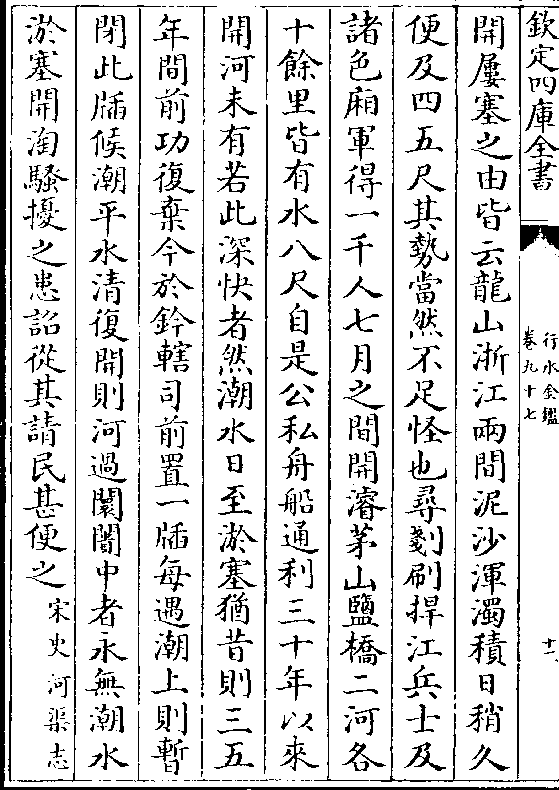 欽定四庫全書
行水金鑑
卷九十七
十一
開屢塞之由皆云龍山浙江兩閘泥沙渾濁積日稍久
便及四五尺其勢當然不足怪也尋剗刷捍江兵士及
諸色廂軍得一千人七月之間開濬茅山鹽橋二河各
十餘里皆有水八尺自是公私舟船通利三十年以來
開河未有若此深快者然潮水日至淤塞猶昔則三五
年間前功復棄今於鈐轄司前置一牐每遇潮上則暫
閉此牐候潮平水清復開則河過闤闠中者永無潮水
淤塞開淘騷擾之患詔從其請民甚便之宋史河渠志